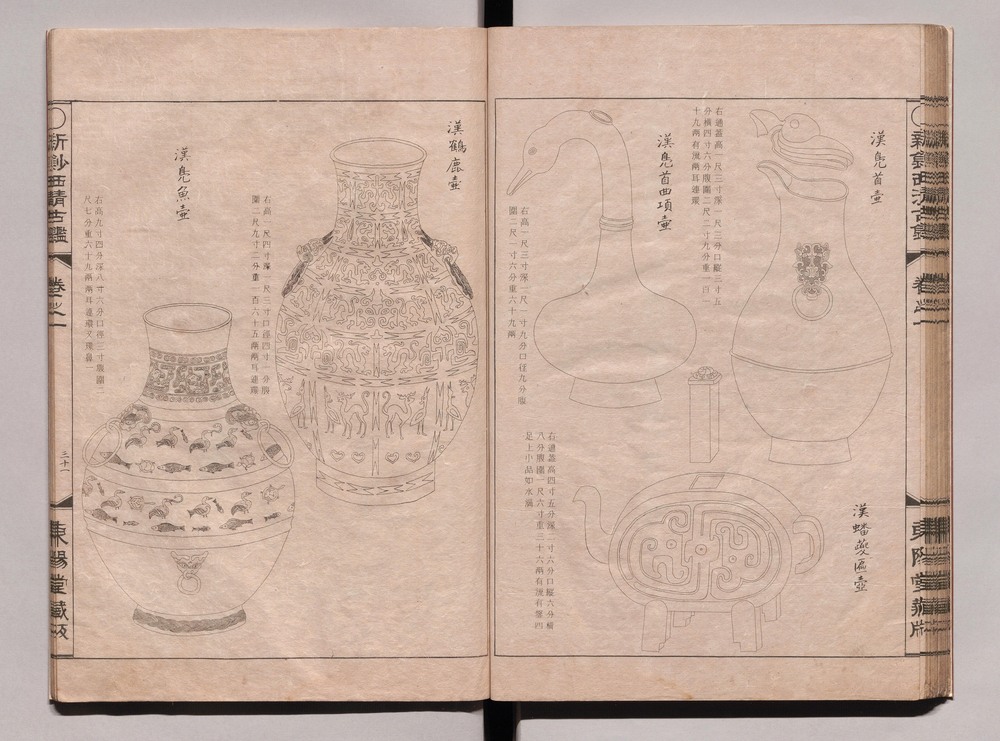 漢鳧首壺
右通蓋高一尺三寸深一尺二分口縱三寸五
分橫四寸六分腹圍二尺二寸九分重一百一
十九兩有流兩耳連環
漢鳧首曲項壺
右高一尺三寸深一尺一寸九分口徑九分腹
圍二尺一寸六分重六十九兩
漢蟠夔匾壺
右通蓋高四寸五分深二寸六分口縱六分橫
八分腹圍一尺六寸重三十六兩有流有鋬四
足上小品如水滴
漢鶴鹿壺
右高一尺四寸深一尺三寸口徑四寸一分腹
圍二尺九寸二分重一百六十五兩兩耳連環
漢鳧魚壺
右高九寸四分深八寸六分口徑三寸腹圍二
尺七分重六十九兩兩耳連環又獸鼻一
新刻西清古鑑
卷之一
三十一
東陽堂藏版